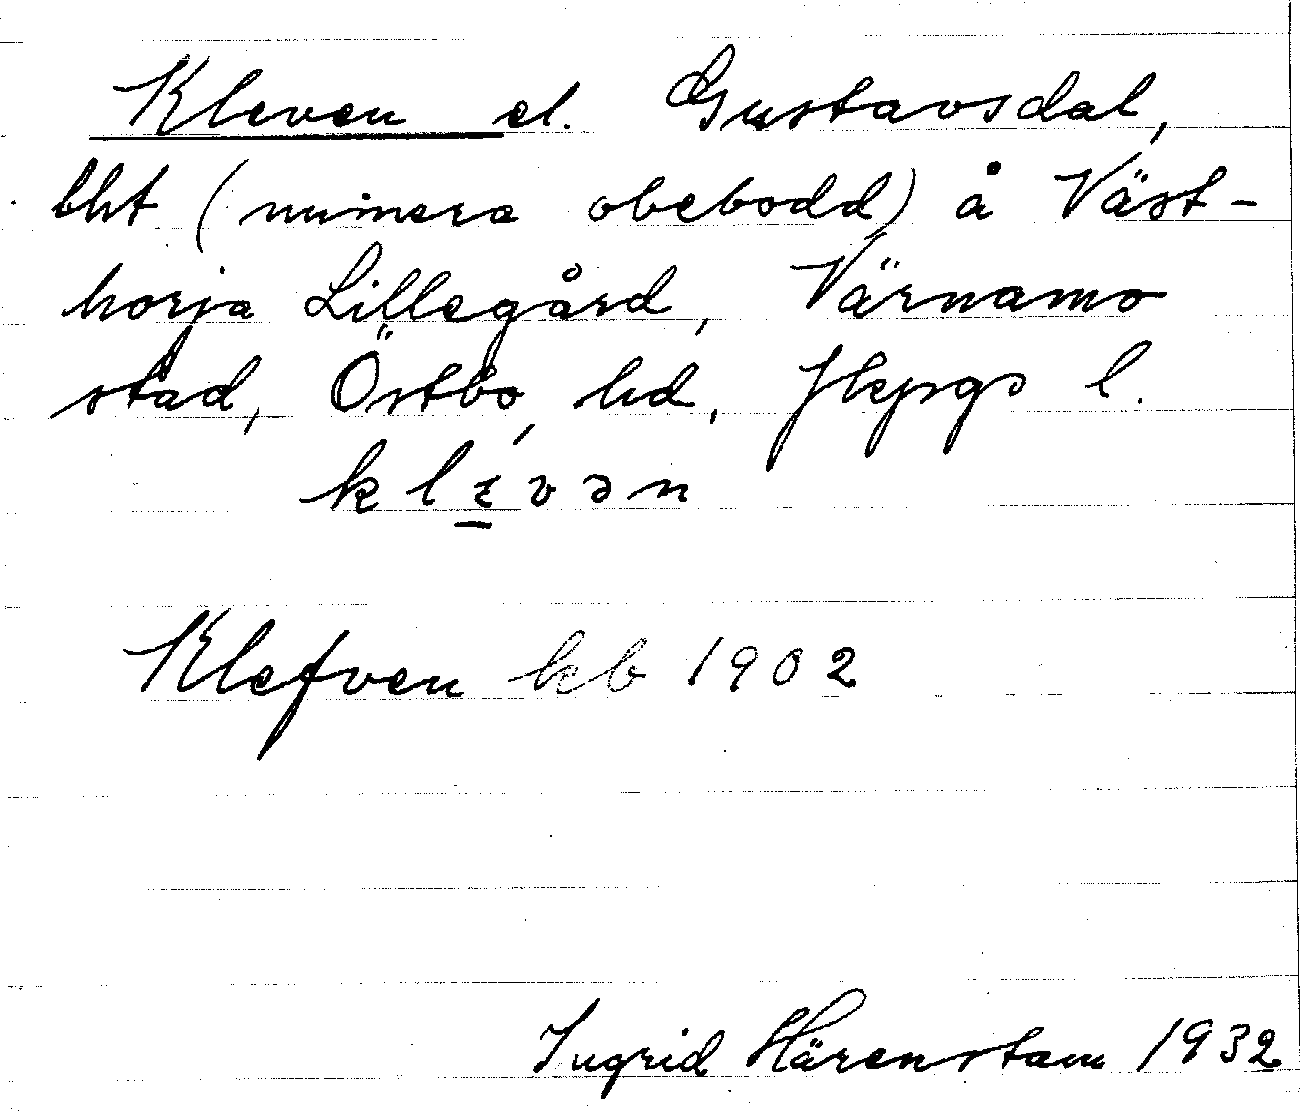 Kleven el. Gustavsdal,
bht (numera obebodd) å Väst-
horja Lillegård, Värnamo
stad, Östbo hd, Jkpgs l.
klɛ̱vən
Klefven kb 1902
Ingrid Härenstam 1932